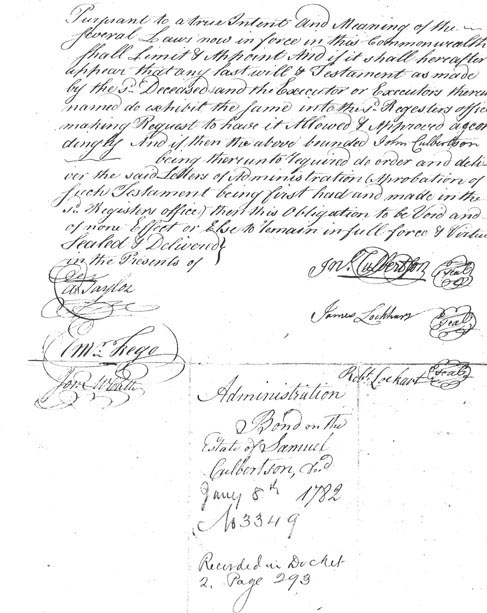 Pursuant to a true Intent and Meaning of the
several Laws now in force in this Commonwealth
shall Limit & Appoint And if it shall hereafter
appear that any last will & Testament as made
by the sd. Deceased and the Executor or Executors therein
named do exhibit the same into the sd. Registers office
making Request to have it Allowed & Approved accor
dingly And if then the above bounded John Culbertson
being thereunto required do order and deli
ver the said Letters of Administration (Aprobation of
such Testament being first had and made in the
sd. Registers office) then this Obligation to be Void and
of none Effect or Else to remain in full force & Virtue
Sealed & Delivered
in the Presents of
Jno. Culbertson Seal
Taylor
James Lockhart Seal
Robt. Lockhart Seal
Administration
Bond on the
Estate of Samuel
Culbertson, Decd
Jany 8th 1782
No 3349
Recorded in Docket
2. Page 293